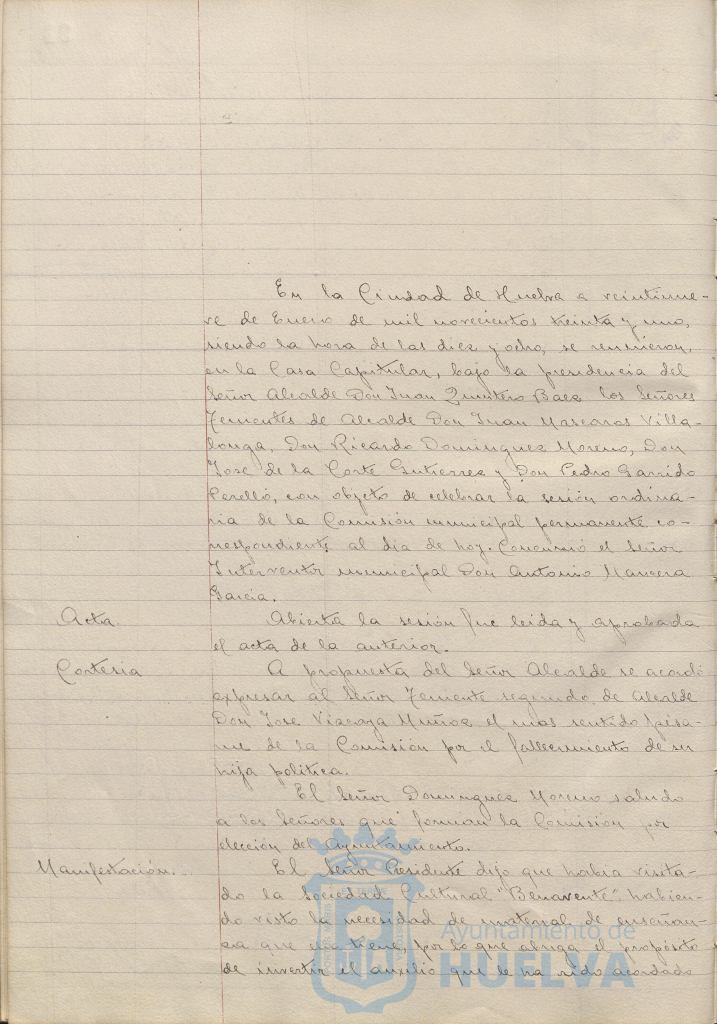 En la Ciudad de Huelva a veintinue-
ve de Enero de mil novecientos treinta y uno,
siendo la hora de las diez y ocho, se reunieron,
en la Casa Capitular, bajo la presidencia del
Señor Alcalde Don Juan Quintero Baez los Señores
Tenientes de Alcalde Don Juan Mascaros Villa-
longa, Don Ricardo Dominguez Moreno, Don
Jose de la Corte Gutierrez y Don Pedro Garrido
Perelló, con objeto de celebrar la sesión ordina-
ria de la Comisión municipal permanente co-
rrespondiente al dia de hoy. Concurrió el Señor
Interventor municipal Don Antonio Mancera
Garcia.
Acta. Abierta la sesión fue leida y aprobada
el acta de la anterior.
Cortesia A propuesta del Señor Alcalde se acordó
expresar al Señor Teniente segundo de Alcalde
Don Jose Vizcaya Muñoz el mas sentido pésa-
me de la Comisión por el fallecimiento de su
hija politica.
El Señor Dominguez Moreno saludo
a los Señores que forman la Comisión por
elección del Ayuntamiento.
Manifestación. El Señor Presidente dijo que habia visita-
do la Sociedad Cultural "Benavente" habien-
do visto la necesidad de material de enseñan-
za que ella tiene, por lo que abriga el propósito
de invertir el auxilio que le ha sido acordado
Ayuntamiento de
HUELVA